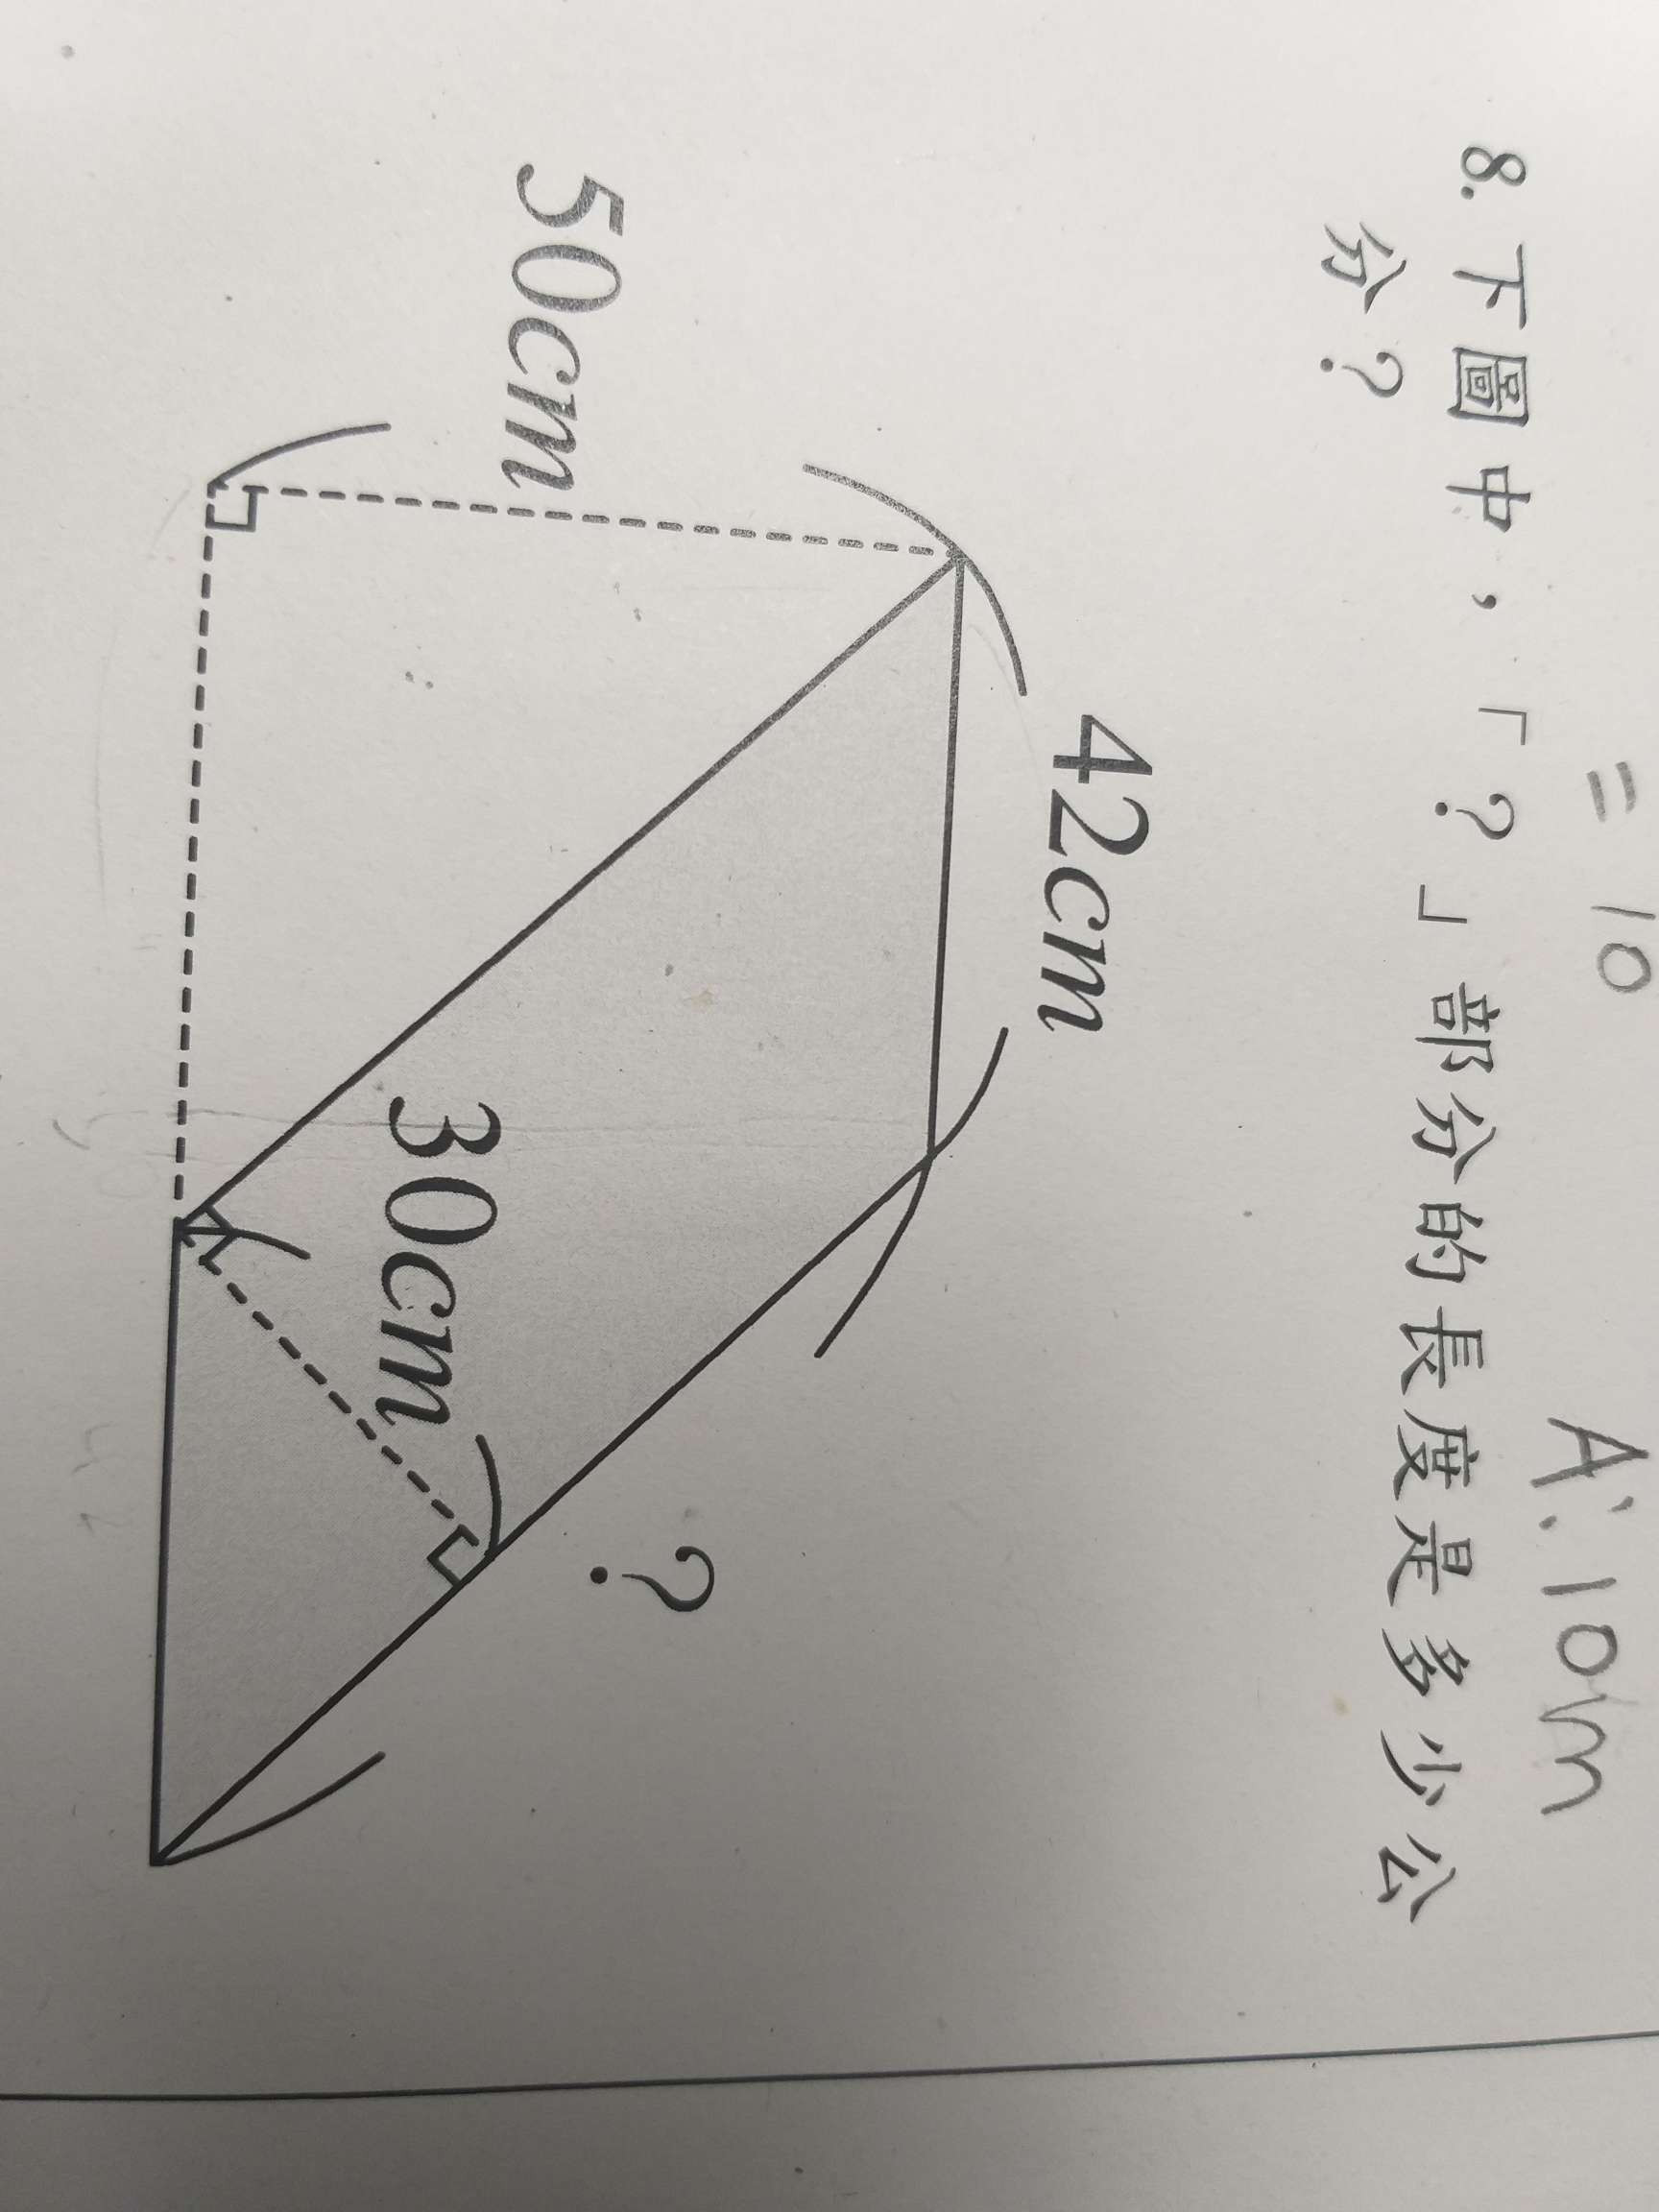 = 10
A:10m
8.下圖中,「?」部分的長度是多少公
分?
42cm
50cm
30cm
?